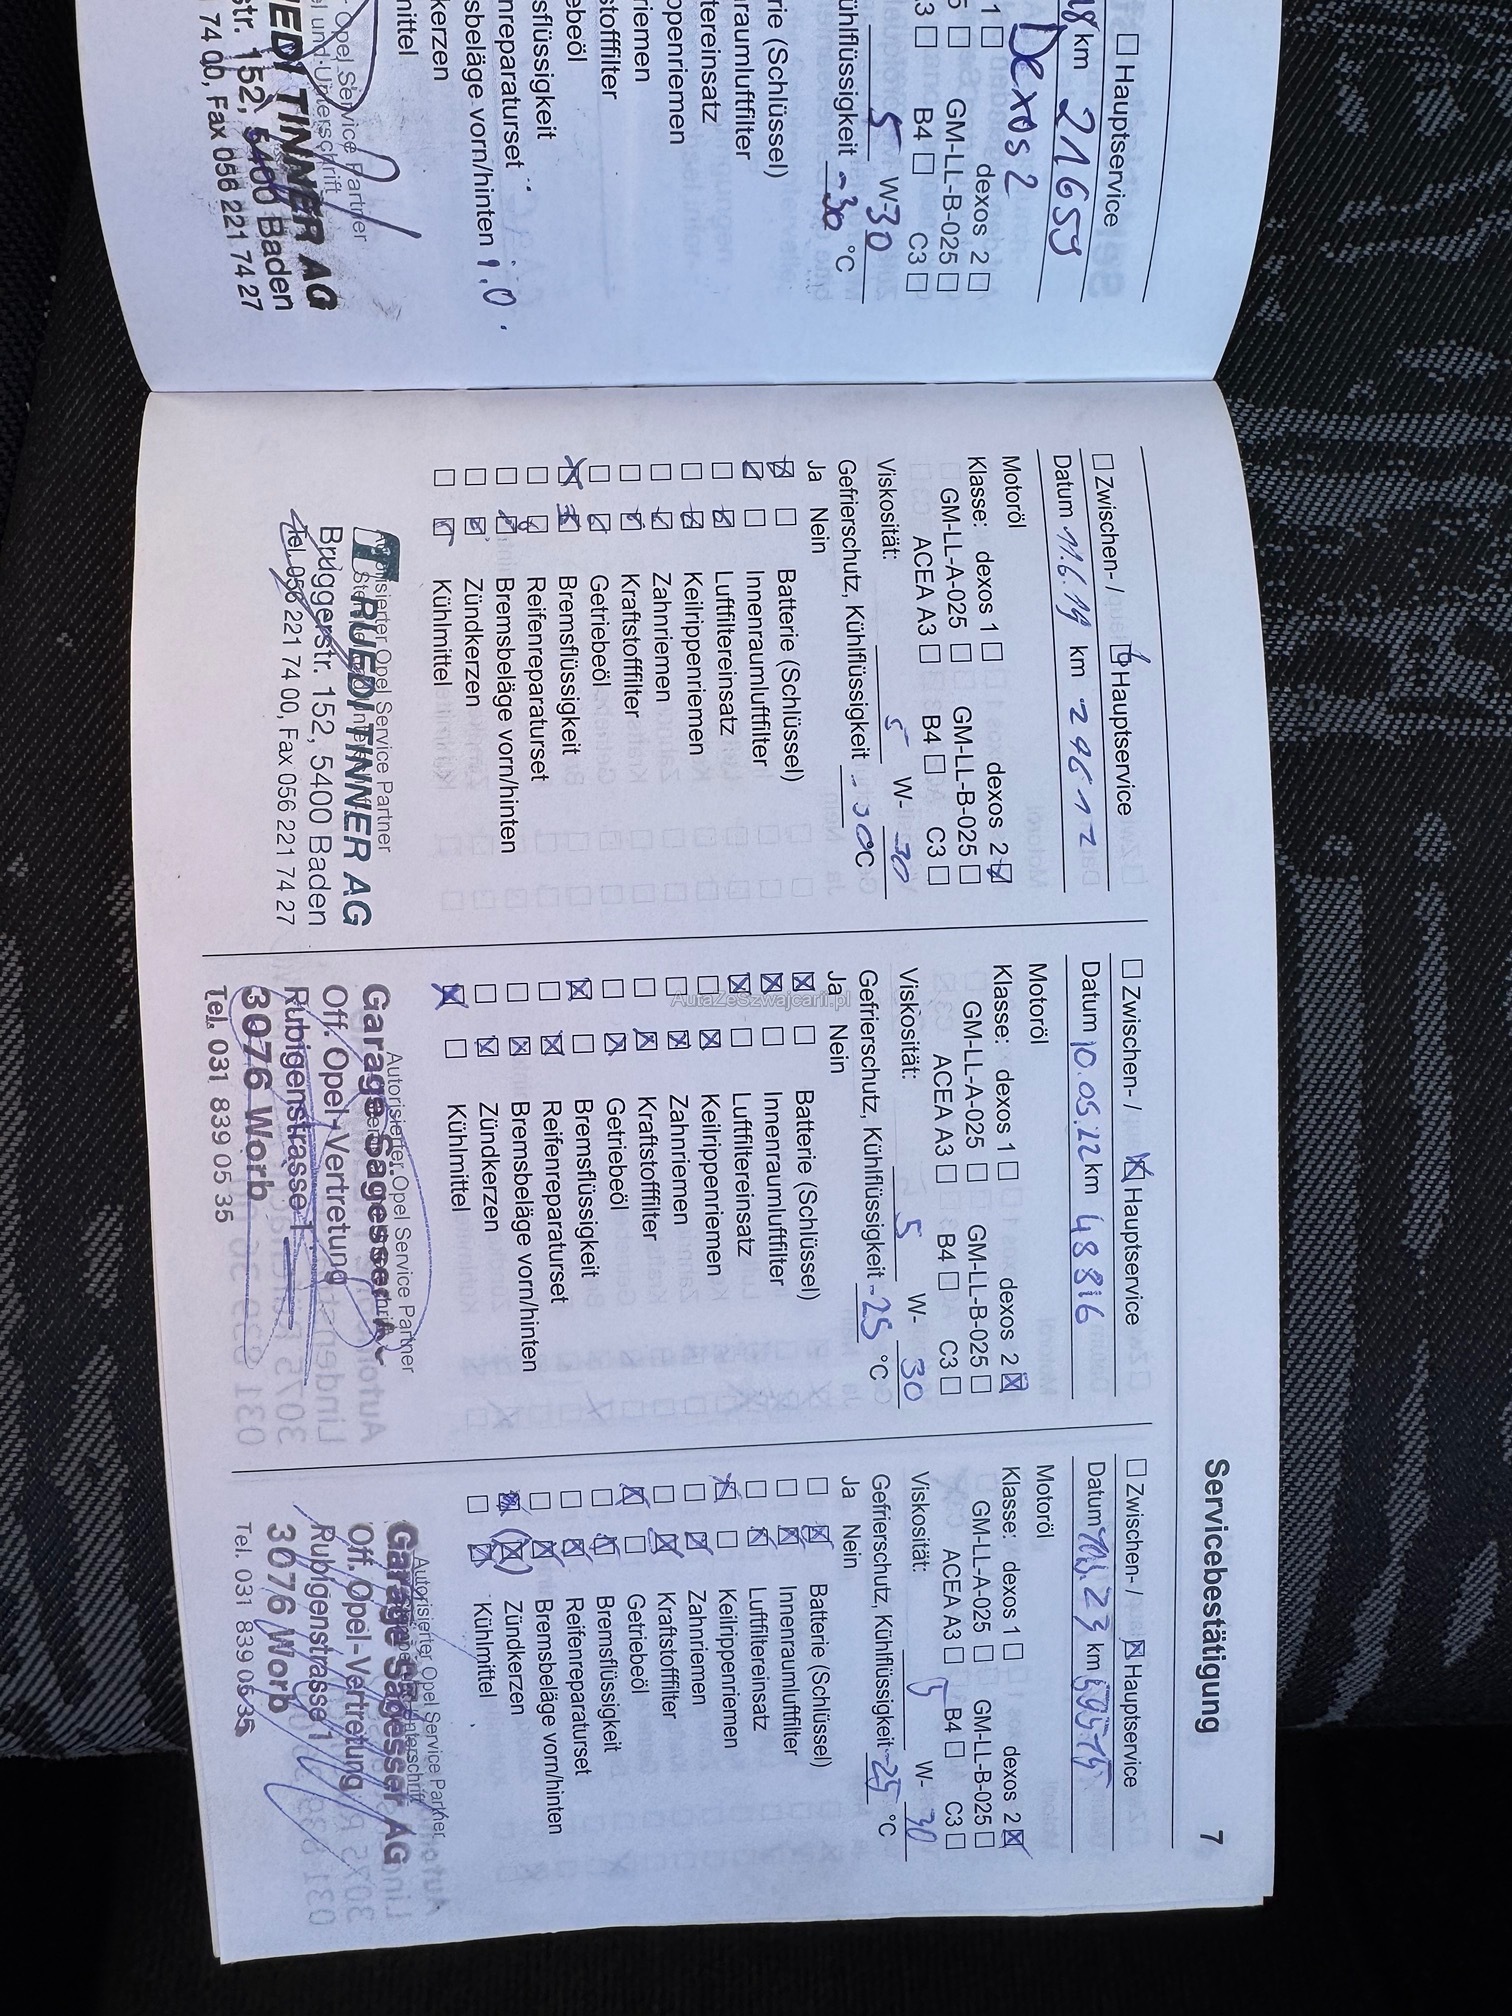 Hauptservice
km 21659
Dexos 2
1 dexos 2
GM-LL-B-025
B4 C3
5 W-30
ühlflüssigkeit -30 °C
rie (Schlüssel)
raumluftfilter
tereinsatz
ppenriemen
riemen
stofffilter
ebeöl
sflüssigkeit
nreparaturset
sbeläge vorn/hinten i.O.
kerzen
mittel
Opel Service Partner
el und Unterschrift
EDI TINNER AG
str. 152, 5400 Baden
74 00, Fax 056 221 74 27
Servicebestätigung 7
Zwischen- / Hauptservice
Datum 11.6.19 km 29612
Motoröl
Klasse: dexos 1 dexos 2
GM-LL-A-025 GM-LL-B-025
ACEA A3 B4 C3
Viskosität: 5 W-30
Gefrierschutz, Kühlflüssigkeit -30 °C
Ja Nein
Batterie (Schlüssel)
Innenraumluftfilter
Luftfiltereinsatz
Keilrippenriemen
Zahnriemen
Kraftstofffilter
Getriebeöl
Bremsflüssigkeit
Reifenreparaturset
Bremsbeläge vorn/hinten
Zündkerzen
Kühlmittel
Autorisierter Opel Service Partner
RUEDI TINNER AG
Bruggerstr. 152, 5400 Baden
Tel. 056 221 74 00, Fax 056 221 74 27
Zwischen- / Hauptservice
Datum 10.05.22 km 48816
Motoröl
Klasse: dexos 1 dexos 2
GM-LL-A-025 GM-LL-B-025
ACEA A3 B4 C3
Viskosität: 5 W-30
Gefrierschutz, Kühlflüssigkeit -25 °C
Ja Nein
Batterie (Schlüssel)
Innenraumluftfilter
Luftfiltereinsatz
Keilrippenriemen
Zahnriemen
Kraftstofffilter
Getriebeöl
Bremsflüssigkeit
Reifenreparaturset
Bremsbeläge vorn/hinten
Zündkerzen
Kühlmittel
Autorisierter Opel Service Partner
Garage Sägesser A
Off. Opel-Vertretung
Rubigenstrasse 1
3076 Worb
Tel. 031 839 05 35
Zwischen- / Hauptservice
Datum 23 km
Motoröl
Klasse: dexos 1 dexos 2
GM-LL-A-025 GM-LL-B-025
ACEA A3 B4 C3
Viskosität: 5 W-30
Gefrierschutz, Kühlflüssigkeit -25 °C
Ja Nein
Batterie (Schlüssel)
Innenraumluftfilter
Luftfiltereinsatz
Keilrippenriemen
Zahnriemen
Kraftstofffilter
Getriebeöl
Bremsflüssigkeit
Reifenreparaturset
Bremsbeläge vorn/hinten
Zündkerzen
Kühlmittel
Autorisierter Opel Service Partner
Garage Sägesser AG
Off. Opel-Vertretung
Rubigenstrasse 1
3076 Worb
Tel. 031 839 05 35
AutaZeSzwajcarii.pl